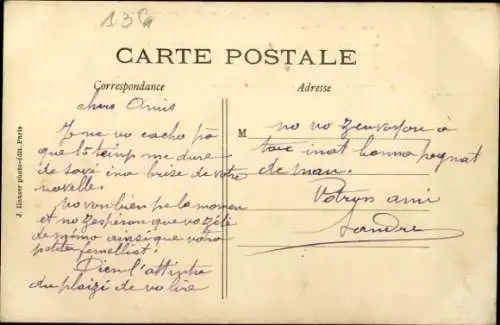 13G
CARTE POSTALE
Correspondance
Adresse
J. Hauser photo-édit. Paris
chers Amis
Je ne vo cache pâ
que le teinp me dure
de savé ina brise de votre
novelle.
no von bien pe la momen
et no zespéron que vo zété
de mémo ainsi que votro
petite famelliat.
Dien l'attinte
du plaizi de vo lire
M
no vo
à
toic inat bonna pognat
de man.
Votron ami
Landre